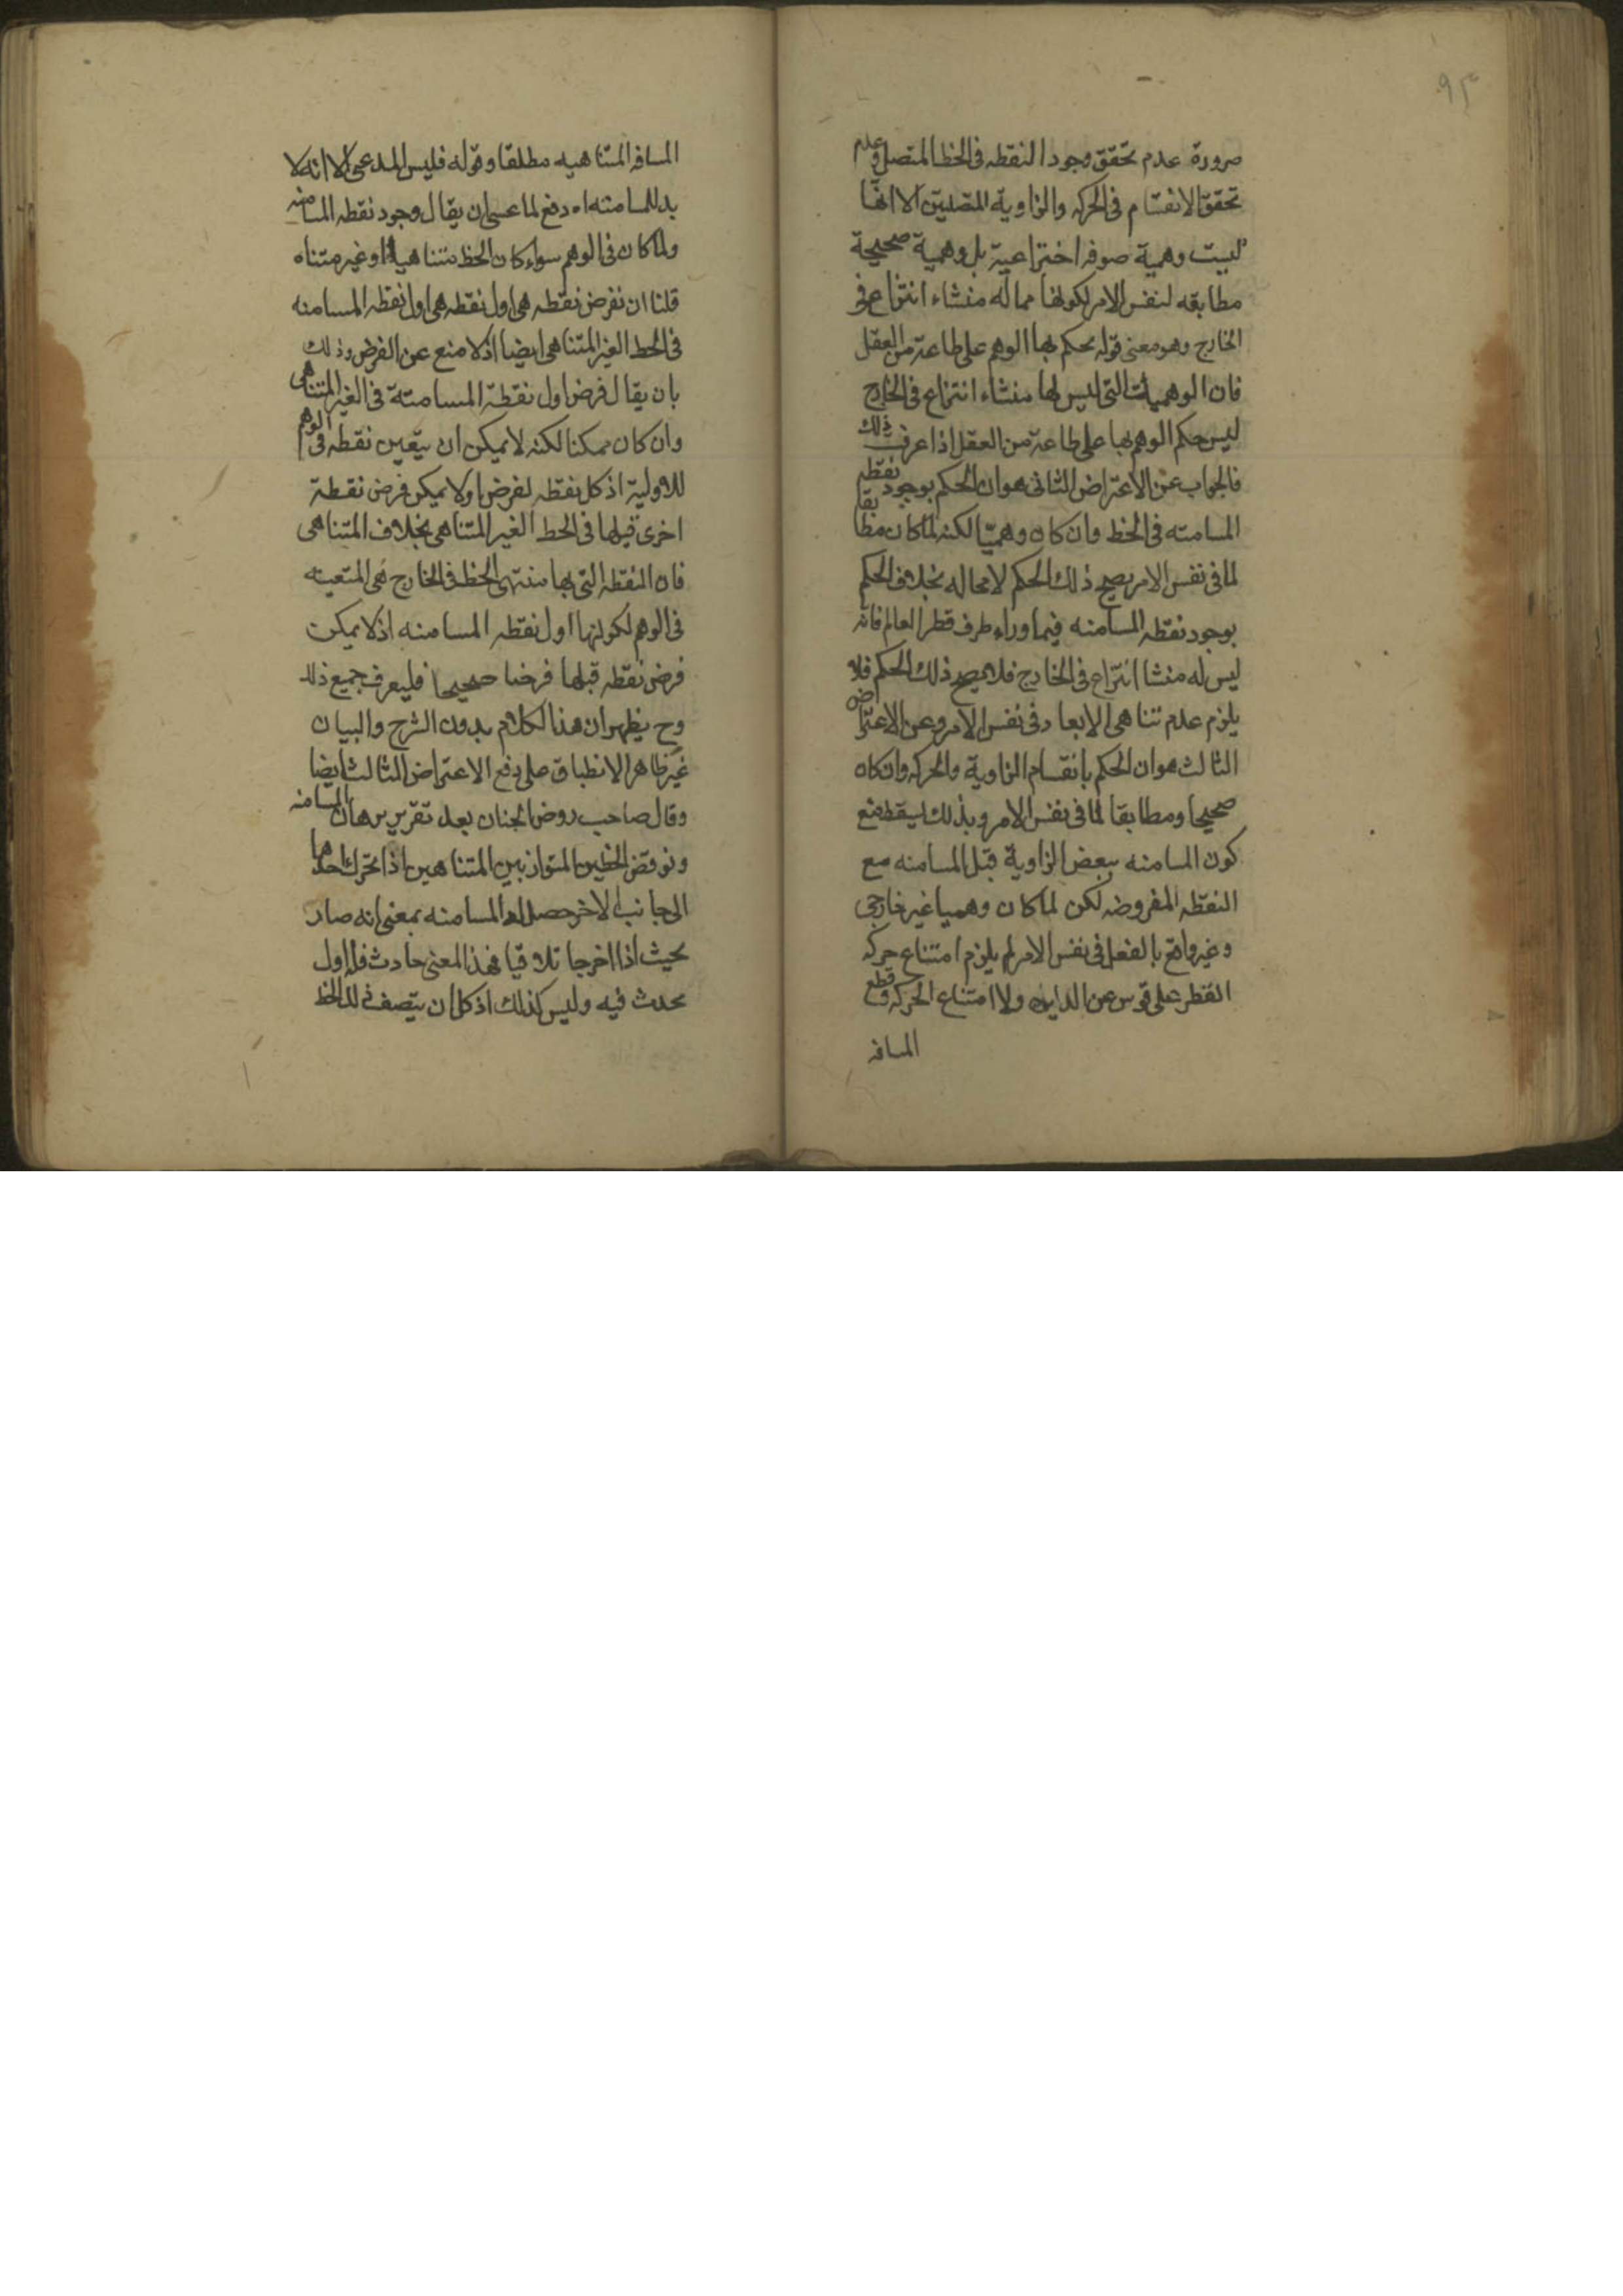 ٩٣
ضرورة عدم تحقق وجود النقطه فى الخط المتصل وعدم
تحقق الانقسام فى الحركه والزاوية المتصلتين الا انها
ليست وهمية صرفه اختراعية بل وهمية صحيحة
مطابقه لنفس الامر لكونها مما له منشاء انتزاع فى
الخارج وهو معنى قوله يحكم بها الوهم على طاعة من العقل
فان الوهميات التى ليس لها منشاء انتزاع فى الخارج
ليس حكم الوهم بها على طاعة من العقل اذا عرفت ذلك
فالجواب عن الاعتراض الثانى هو ان الحكم بوجود نقطه
المسامته فى الخط وان كان وهميا لكنه لما كان مطابقا
لما فى نفس الامر يصح ذلك الحكم لا محاله بخلاف الحكم
بوجود نقطه المسامته فيما وراء طرف قطر العالم فانه
ليس له منشا انتزاع فى الخارج فلا يصح ذلك الحكم فلا
يلزم عدم تناهى الابعاد فى نفس الامر وعن الاعتراض
الثالث هو ان الحكم بانقسام الزاوية والحركه وان كان
صحيحا ومطابقا لما فى نفس الامر وبذلك يسقط منع
كون المسامته ببعض الزاوية قبل المسامته مع
النقطه المفروضه لكن لما كان وهميا غير خارجى
وغير واقع بالفعل فى نفس الامر لم يلزم امتناع حركه
القطر على قوس عن الدايره ولا امتناع الحركه وقطع
المسافه
المسافه المتناهيه مطلقا وقوله فليس المدعى الا انه لا
بد للمسامته اه دفع لما عسى ان يقال وجود نقطه المسامته
ولما كان فى الوهم سواء كان الخط متناهيا او غير متناه
قلنا ان نفرض نقطه هى اول نقطه هى اول نقطه المسامته
فى الخط الغير المتناهى ايضا اذ لا منع عن الفرض وذلك
بان يقال فرض اول نقطة المسامتة فى الغير المتناهى
وان كان ممكنا لكنه لا يمكن ان يتعين نقطه فى الوهم
للاولية اذ كل نقطه لفرض اولا يمكن فرض نقطة
اخرى قبلها فى الخط الغير المتناهى بخلاف المتناهى
فان النقطه التى بها منتهى الخط فى الخارج هى المتعينه
فى الوهم لكونها اول نقطه المسامته اذ لا يمكن
فرض نقطه قبلها فرضا صحيحا فليعرف جميع ذلك
وح يظهر ان هذا الكلام بدون الشرح والبيان
غير ظاهر الانطباق على دفع الاعتراض الثالث ايضا
وقال صاحب روض الجنان بعد تقرير برهان المسامته
ونوقض الخطين المتوازيين المتناهين اذا تحرك احدهما
الى جانب الاخر حصل له المسامته بمعنى انه صار
بحيث اذا اخرجا تلاقيا فهذا المعنى حادث فله اول
يحدث فيه وليس كذلك اذ كل ان يتصف ذلك الخط